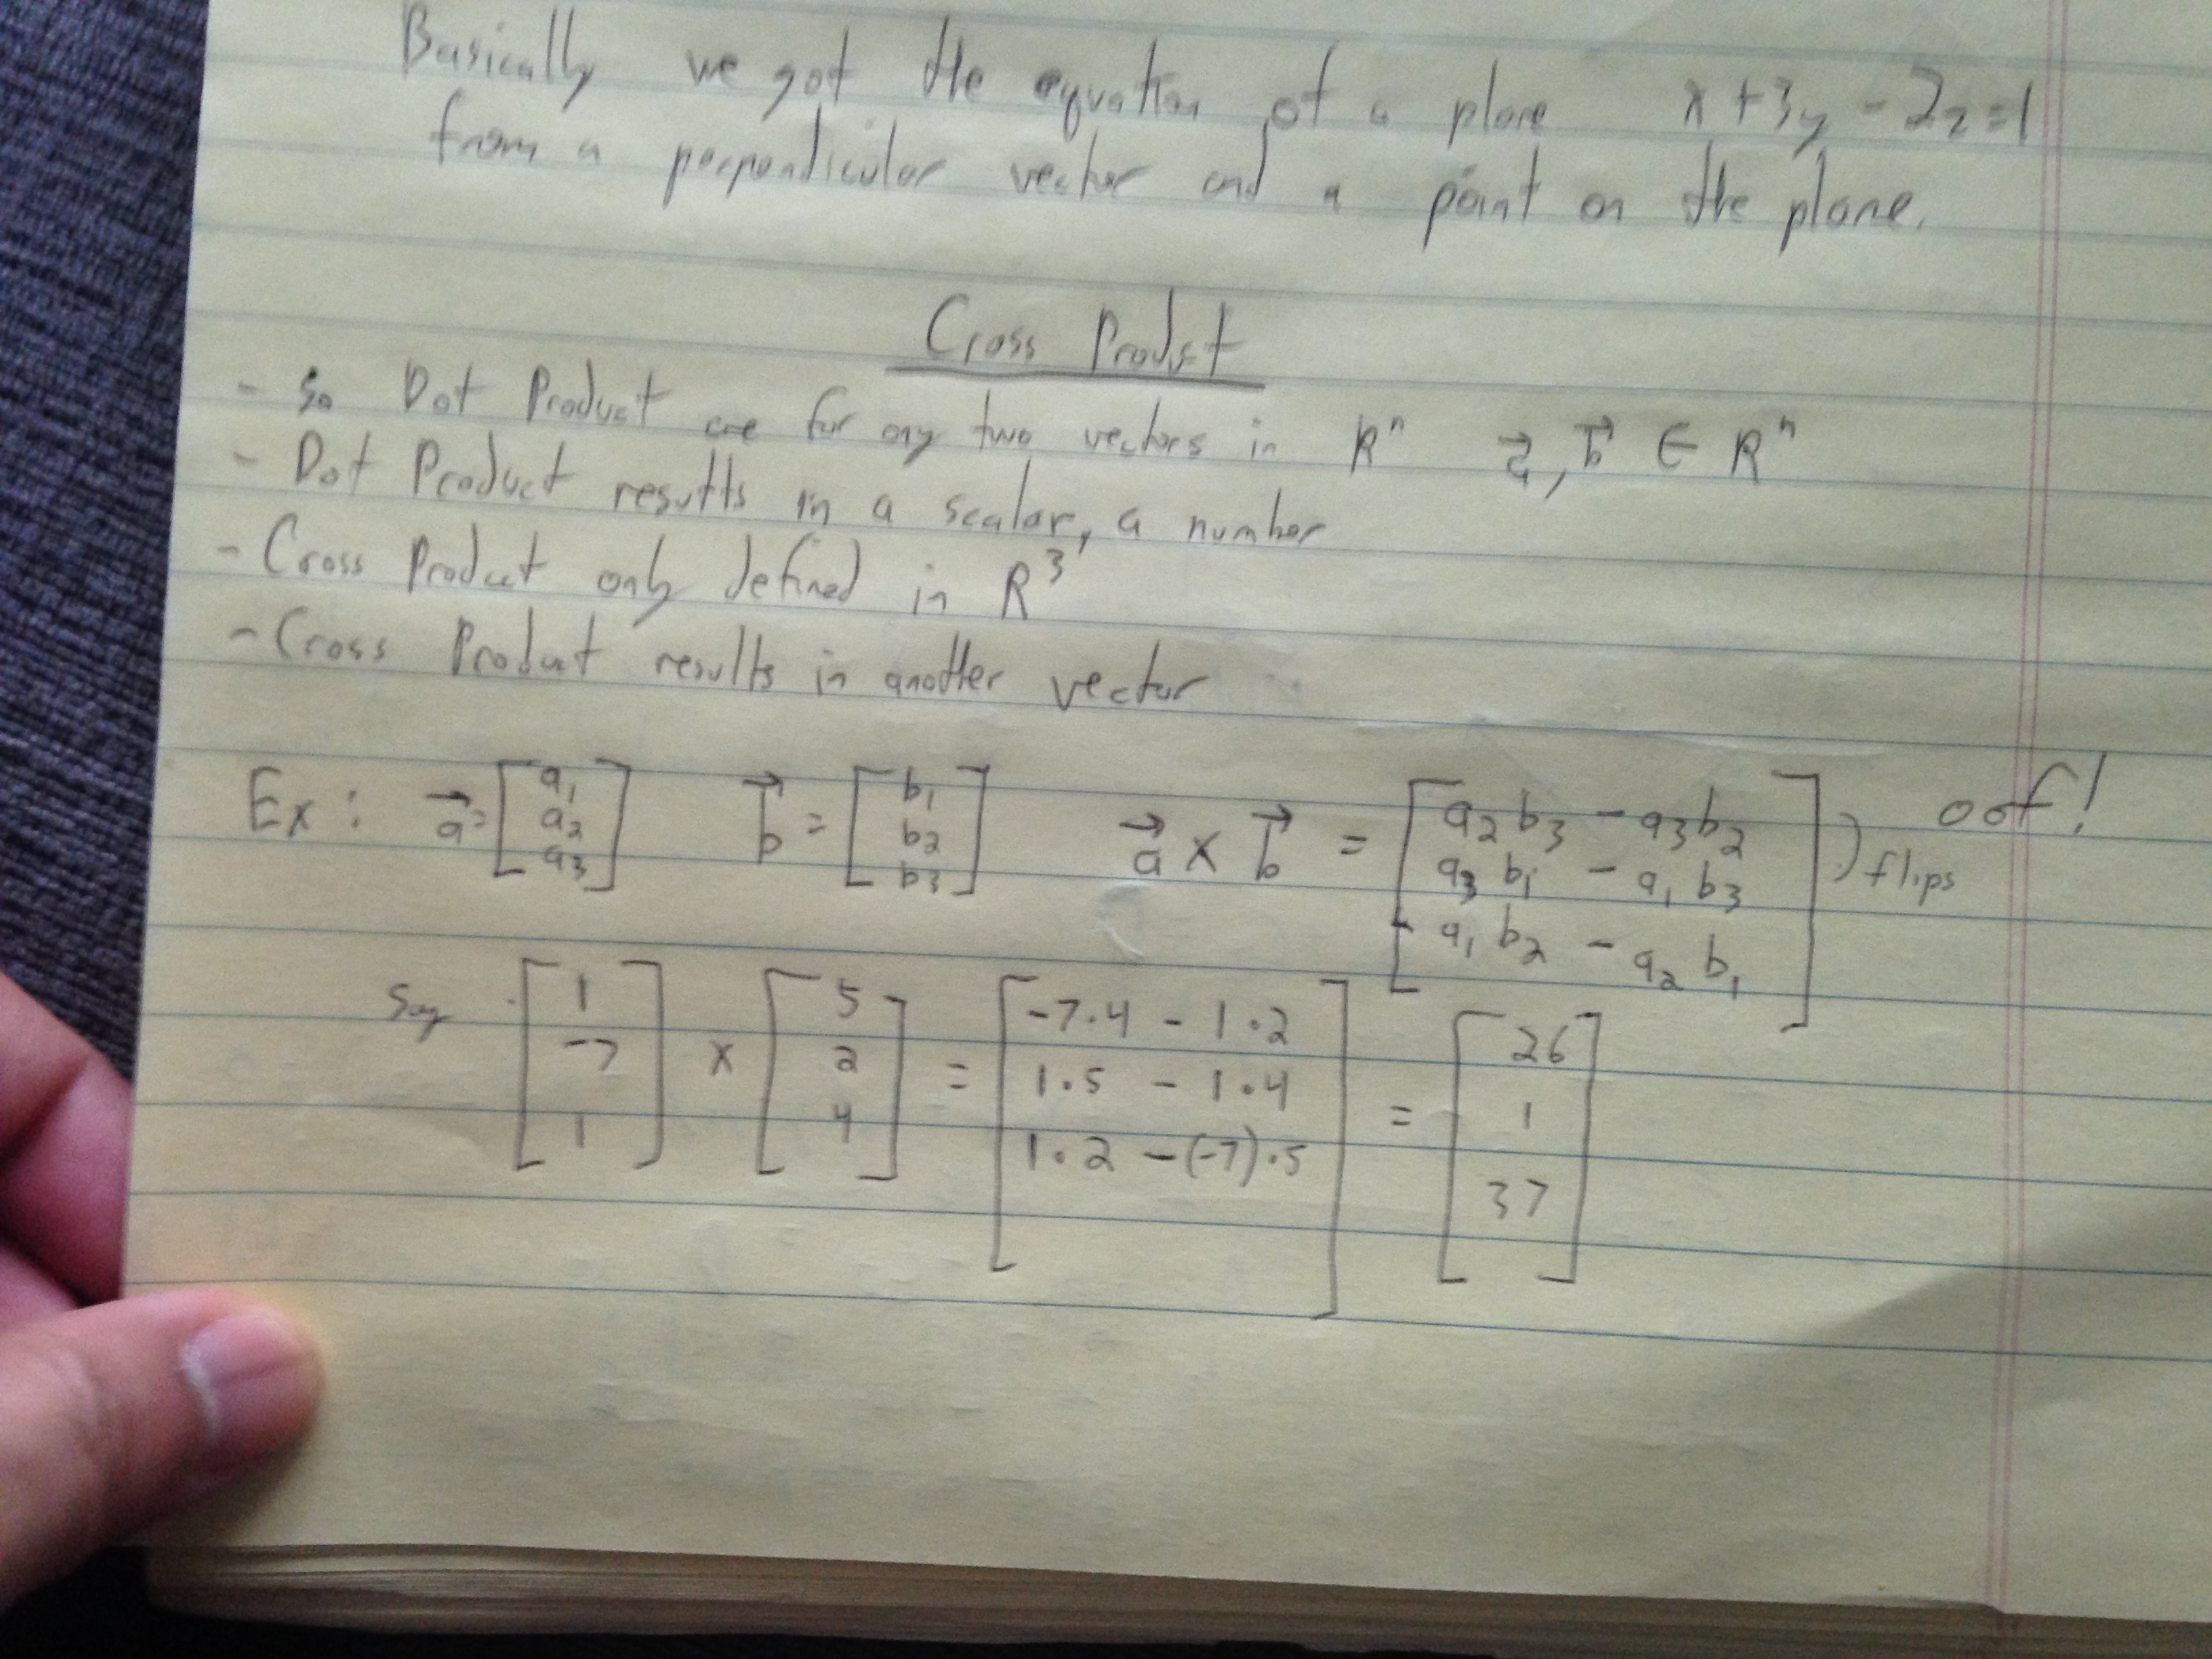 Basically we got the equation of a plane x + 3y - 2z = 1
from a perpendicular vector and a point on the plane.
Cross Product
- So Dot Product are for any two vectors in Rⁿ a⃗, b⃗ ∈ Rⁿ
- Dot Product results in a scalar, a number
- Cross Product only defined in R³
- Cross Product results in another vector
Ex: a⃗ = [a₁ a₂ a₃] b⃗ = [b₁ b₂ b₃] a⃗ × b⃗ = [a₂b₃ - a₃b₂ a₃b₁ - a₁b₃ a₁b₂ - a₂b₁] ) flips oof!
Say [1 -7 1] × [5 2 4] = [-7·4 - 1·2 1·5 - 1·4 1·2 - (-7)·5] = [26 1 37]